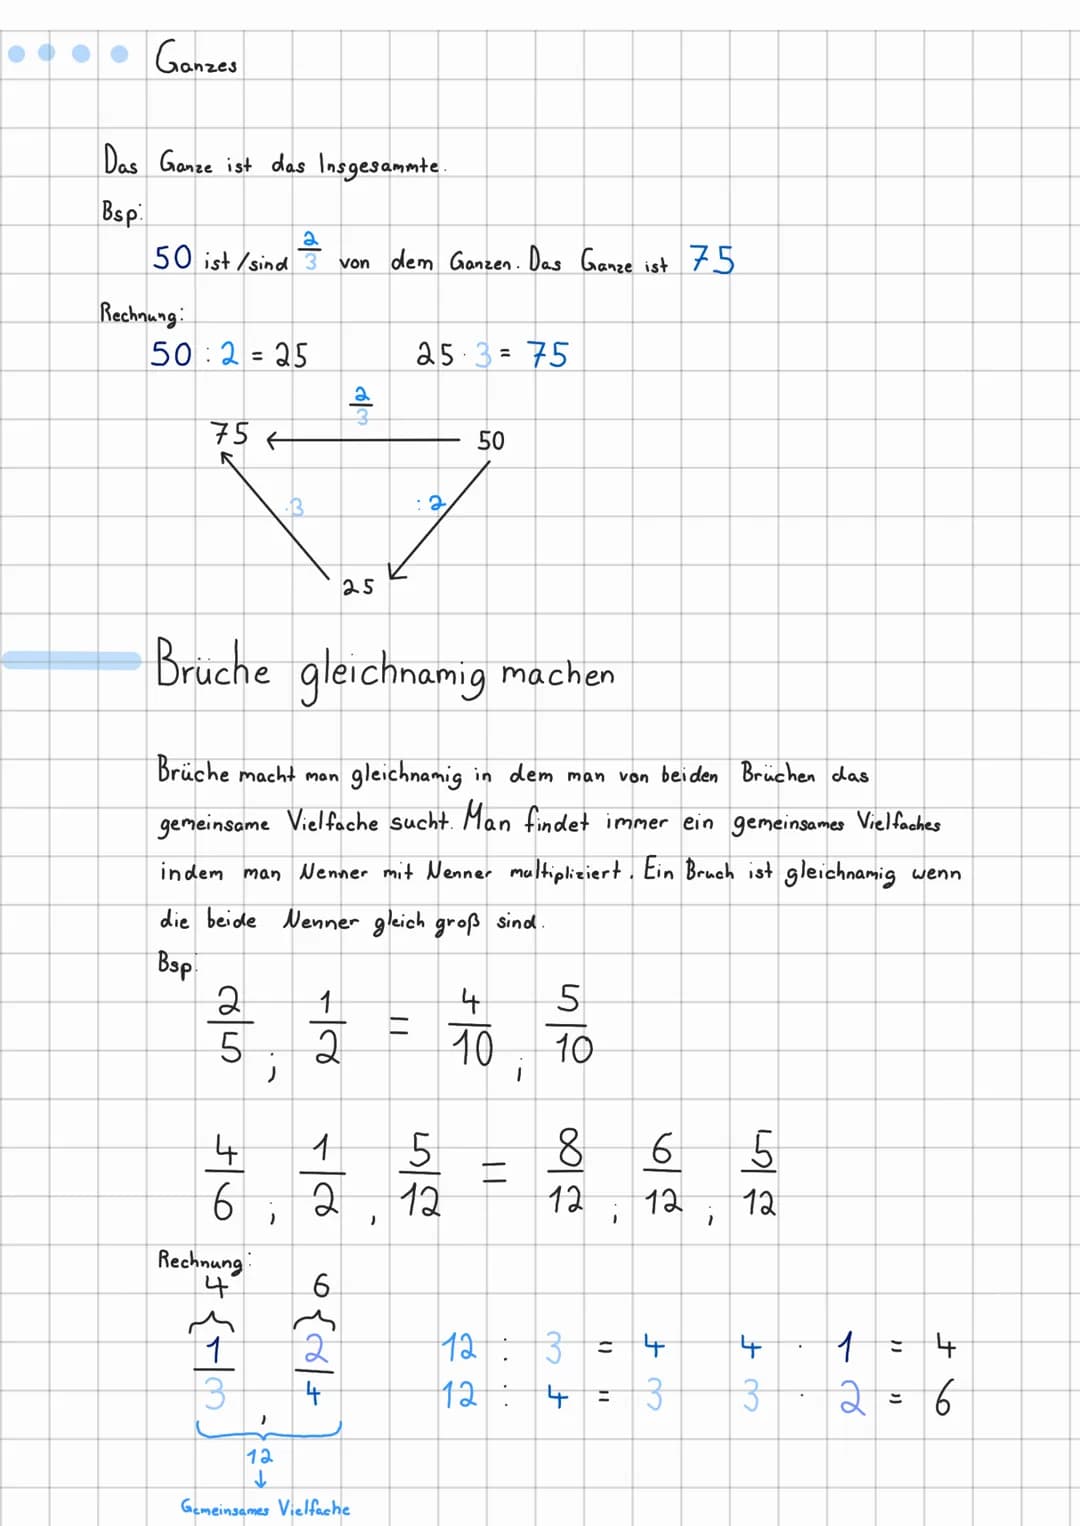 Ganzes
Das Ganze ist das Insgesammte.
Bsp:
50 ist/sind 2/3 von dem Ganzen. Das Ganze ist 75
Rechnung:
50 : 2 = 25 25 · 3 = 75
2/3
75 50
·3 :2
25
Brüche gleichnamig machen
Brüche macht man gleichnamig in dem man von beiden Brüchen das
gemeinsame Vielfache sucht. Man findet immer ein gemeinsames Vielfaches
indem man Nenner mit Nenner multipliziert. Ein Bruch ist gleichnamig wenn
die beide Nenner gleich groß sind.
Bsp.
2/5 ; 1/2 = 4/10 ; 5/10
4/6 ; 1/2 , 5/12 = 8/12 ; 6/12 ; 5/12
Rechnung:
4 6
1/3 , 2/4
12 : 3 = 4 4 · 1 = 4
12 : 4 = 3 3 · 2 = 6
12
Gemeinsames Vielfache